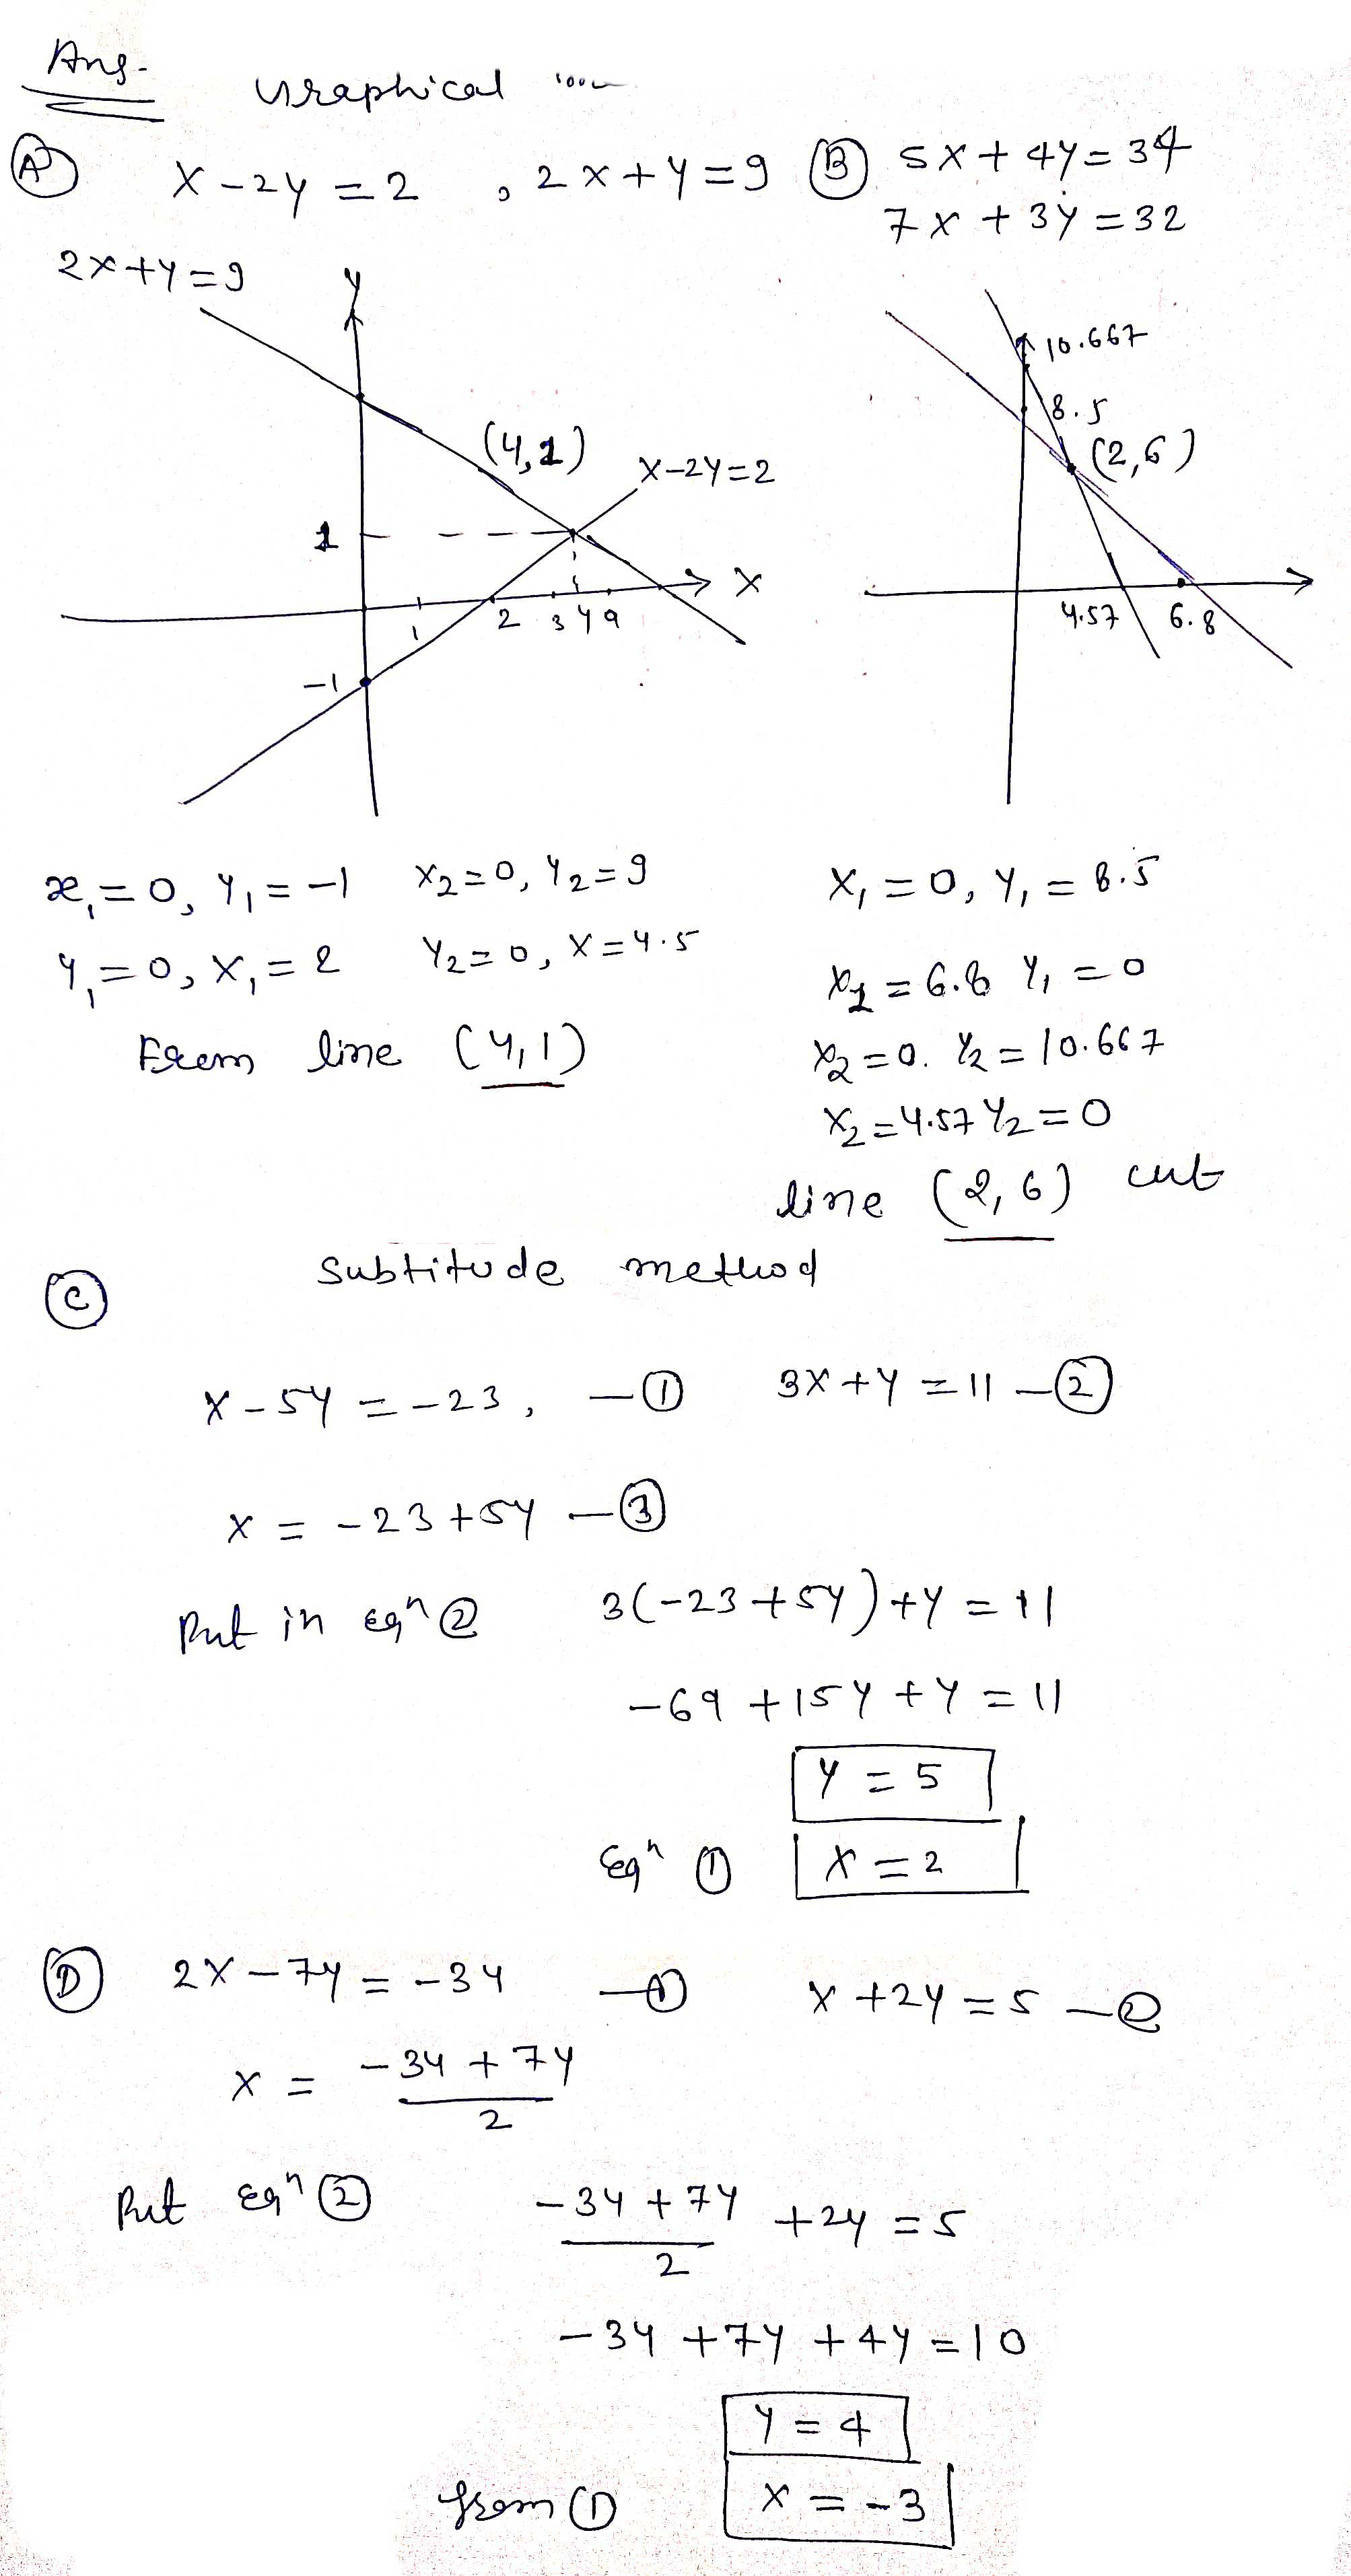 Ans-
Graphical
(A) x - 2y = 2 , 2x + y = 9
(B) 5x + 4y = 34
7x + 3y = 32
2x + y = 9
y
(4,1)
x-2y=2
1
x
1 2 3 4 9
-1
10.667
8.5
(2,6)
4.57 6.8
x₁ = 0, y₁ = -1 x₂ = 0, y₂ = 9
y₁ = 0, x₁ = 2 y₂ = 0, x = 4.5
From line (4,1)
x₁ = 0, y₁ = 8.5
x₁ = 6.8 y₁ = 0
x₂ = 0. y₂ = 10.667
x₂ = 4.57 y₂ = 0
line (2,6) cut
(C) Subtitude method
x - 5y = -23, —① 3x + y = 11 —②
x = -23 + 5y —③
Put in eqⁿ ② 3(-23 + 5y) + y = 11
-69 + 15y + y = 11
y = 5
Eqⁿ ① x = 2
(D) 2x - 7y = -34 —① x + 2y = 5 —②
x = (-34 + 7y)/2
Put eqⁿ ② (-34 + 7y)/2 + 2y = 5
-34 + 7y + 4y = 10
y = 4
from ① x = -3